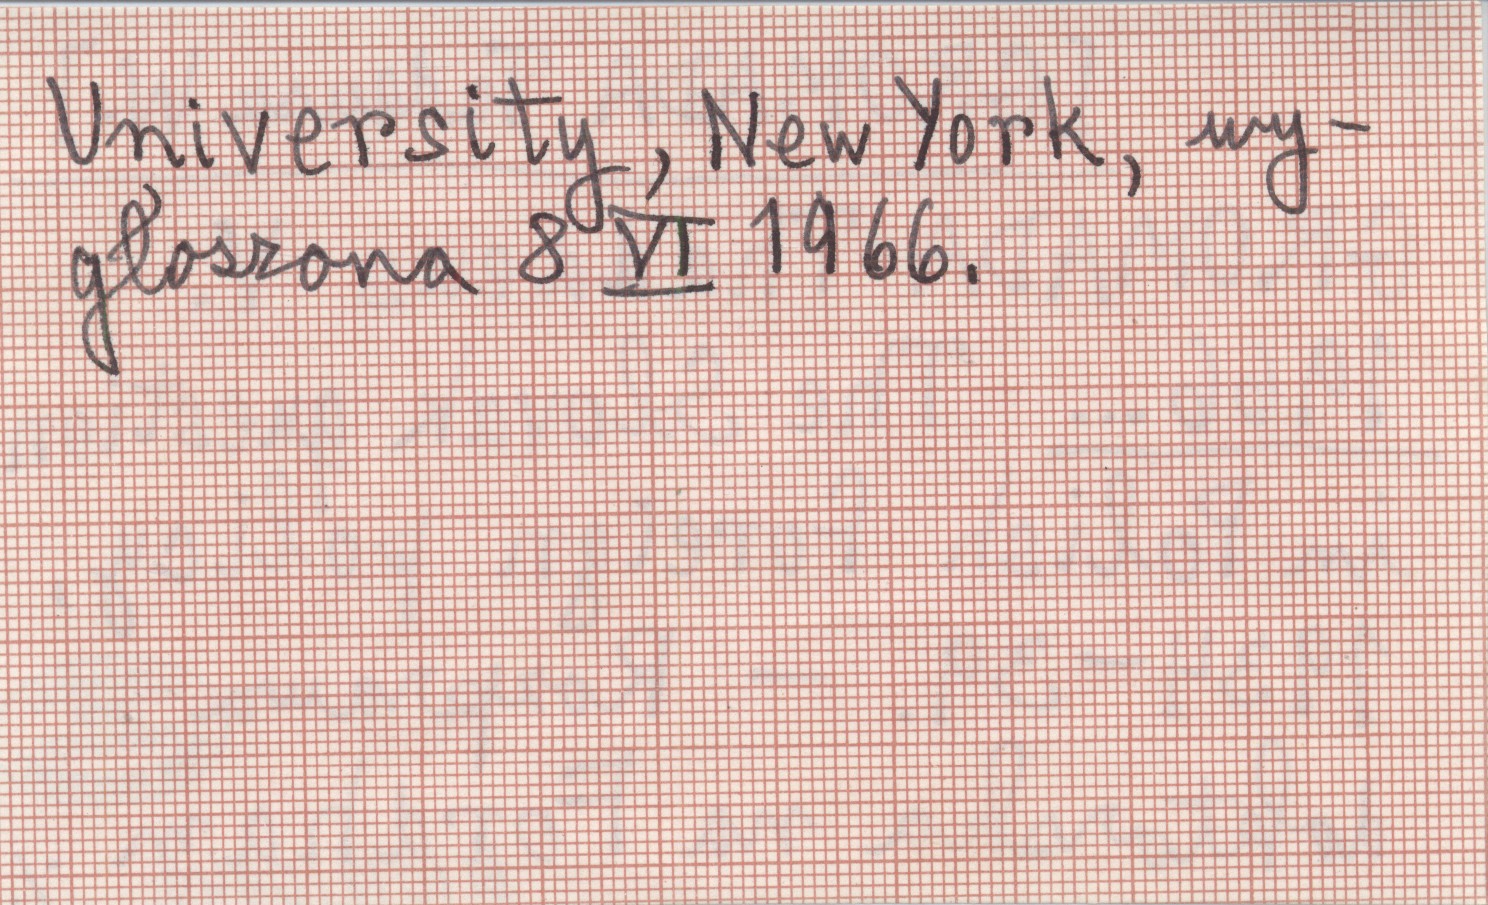 University, New York, wy-
głoszona 8 VI 1966.